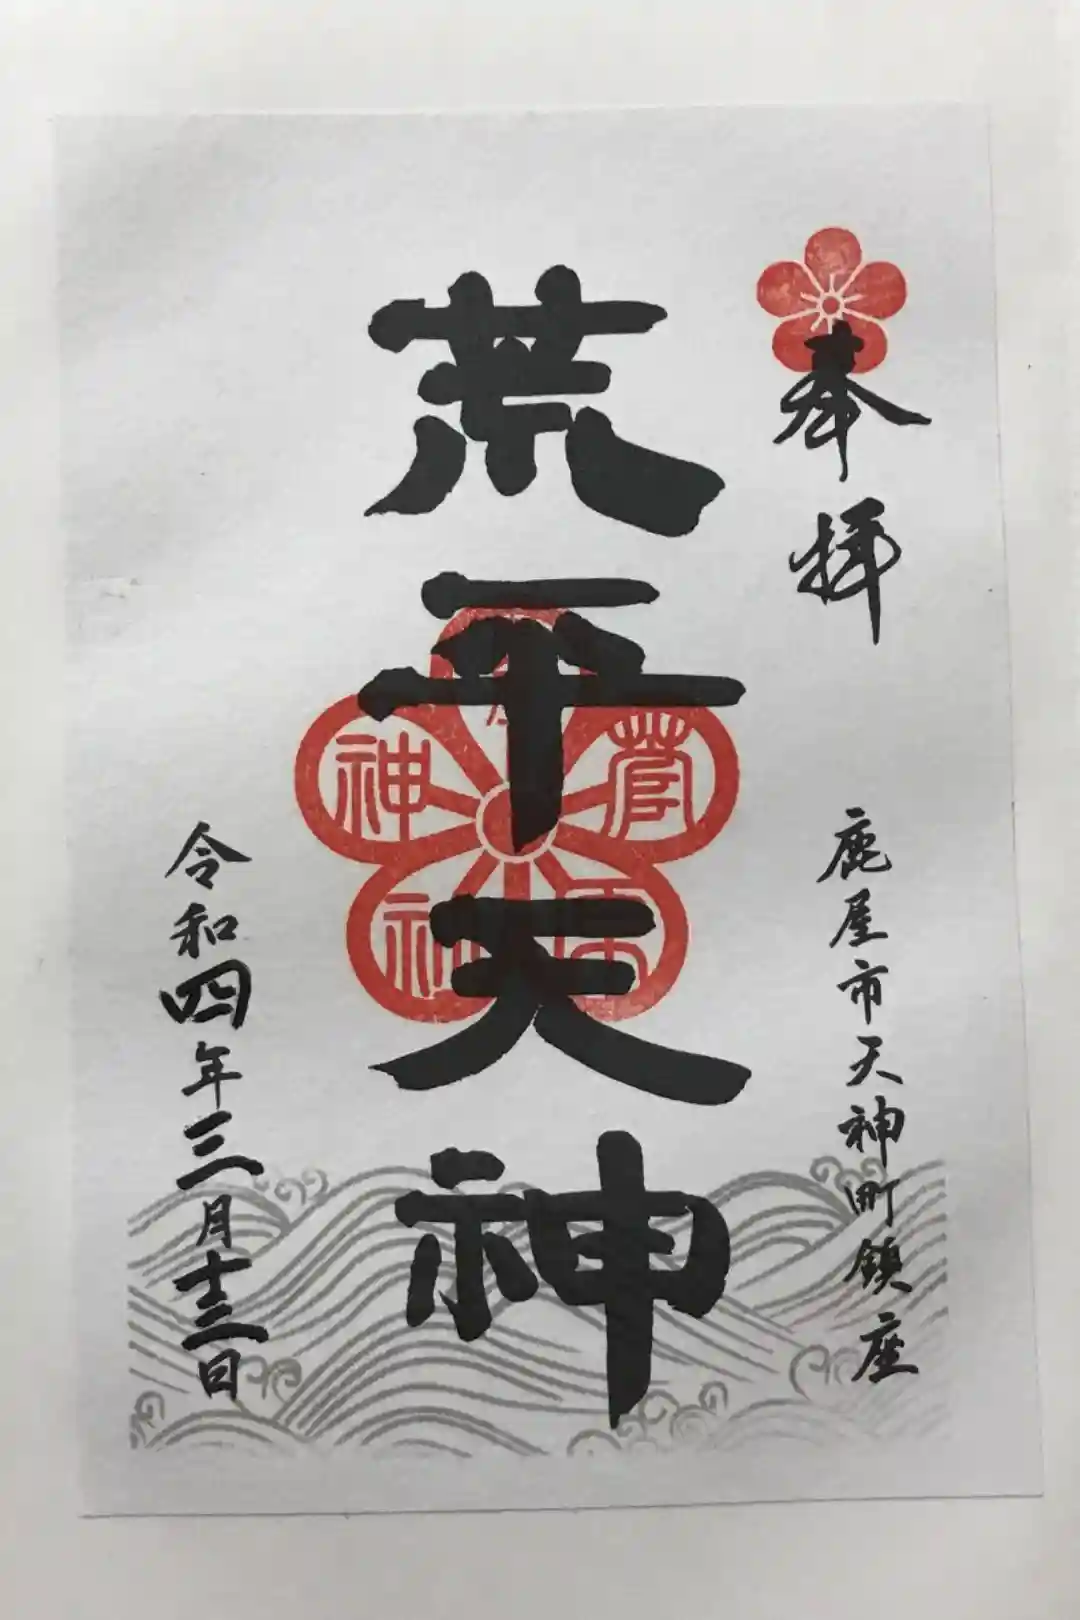 奉拝
鹿屋市天神町鎮座
荒平天神
令和四年三月十三日
菅
神